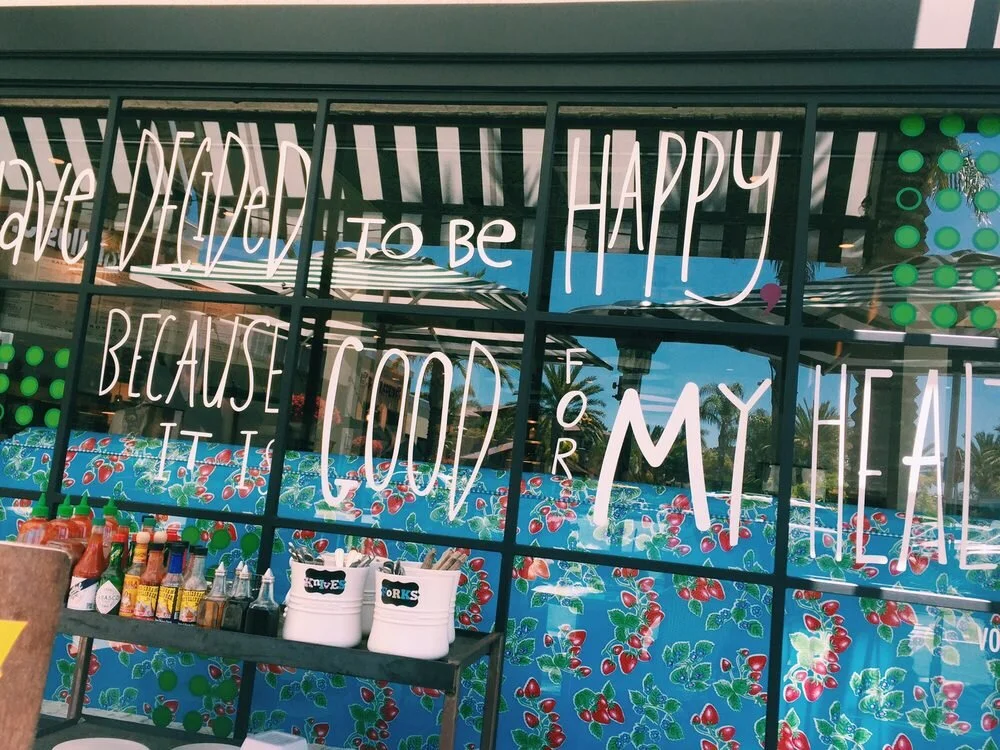 ave DECIDeD TO Be HAPPY,
BECAUSE IT IS GOOD FOR MY HEALT
KNIVES
FORKS
TABASCO
VO